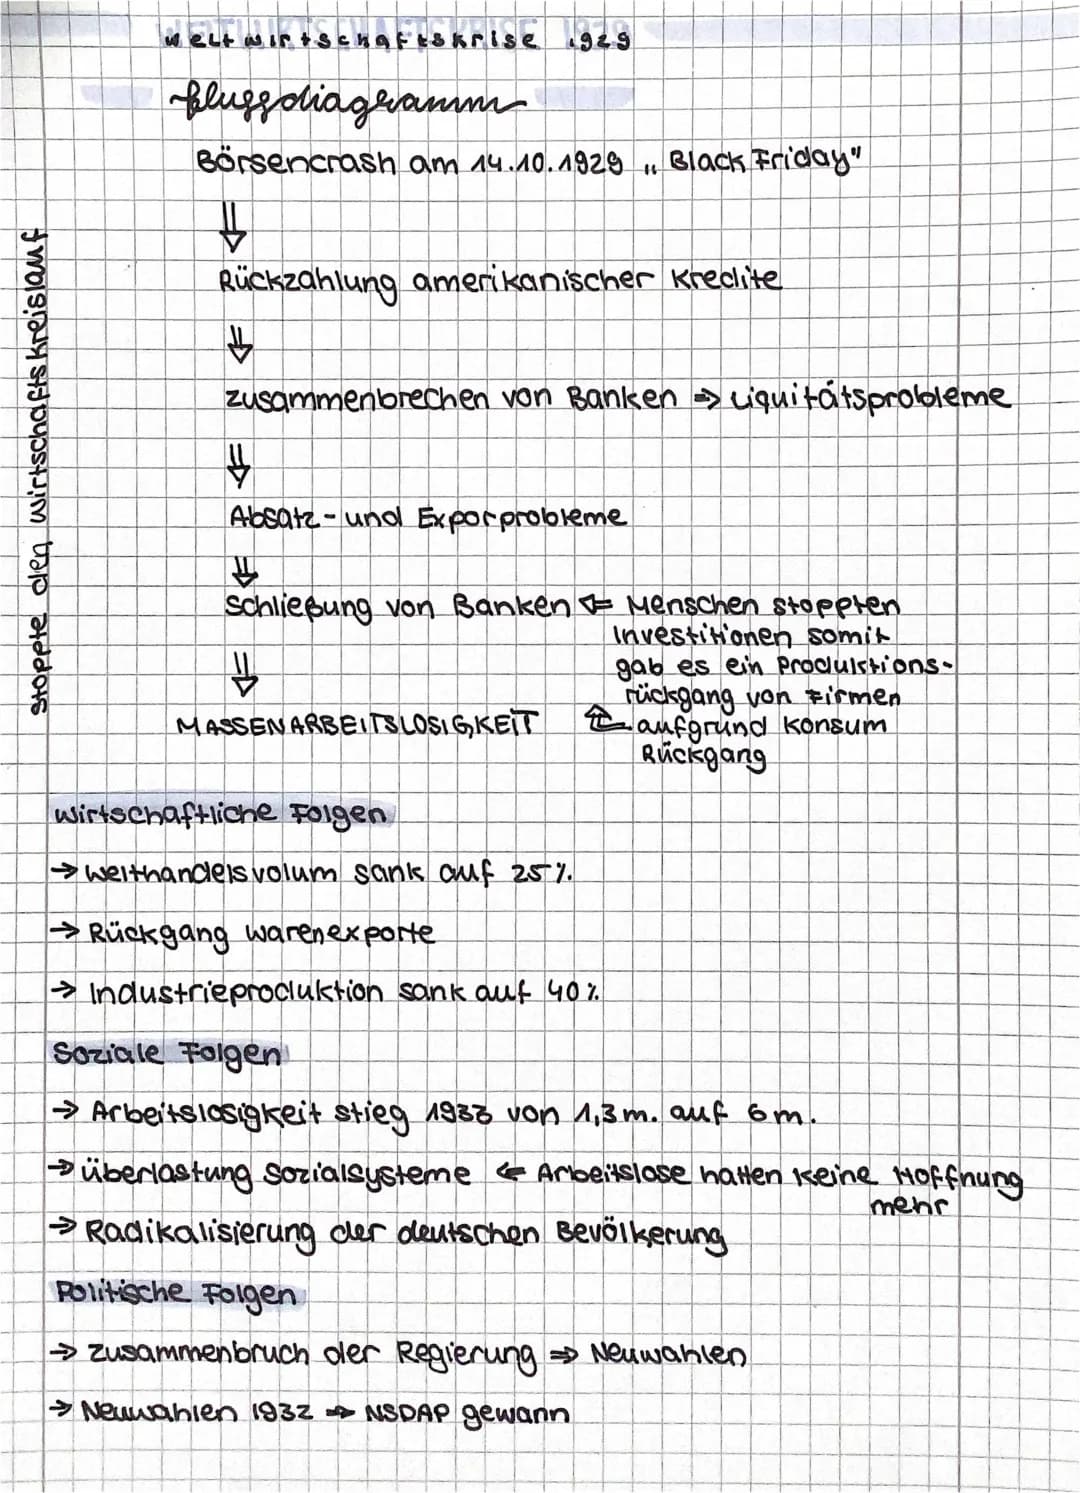 Weltwirtschaftskrise 1929
Flussdiagramm
Börsencrash am 14.10.1929 „Black Friday"
⇓
Rückzahlung amerikanischer Kredite
⇓
Zusammenbrechen von Banken ⇒ Liquitätsprobleme
⇓
Absatz- und Exporprobleme
⇓
Schließung von Banken ⇐ Menschen stoppten
Investitionen somit
gab es ein Produktions-
rückgang von Firmen
⇑ aufgrund Konsum
Rückgang
⇓
MASSENARBEITSLOSIGKEIT
stoppte den Wirtschaftskreislauf
Wirtschaftliche Folgen
→ Welthandelsvolum sank auf 25%.
→ Rückgang Warenexporte
→ Industrieproduktion sank auf 40%
Soziale Folgen
→ Arbeitslosigkeit stieg 1933 von 1,3m. auf 6m.
→ Überlastung Sozialsysteme ⇐ Arbeitslose hatten keine Hoffnung
mehr
→ Radikalisierung der deutschen Bevölkerung
Politische Folgen
→ Zusammenbruch der Regierung ⇒ Neuwahlen
→ Neuwahlen 1932 ⇒ NSDAP gewann